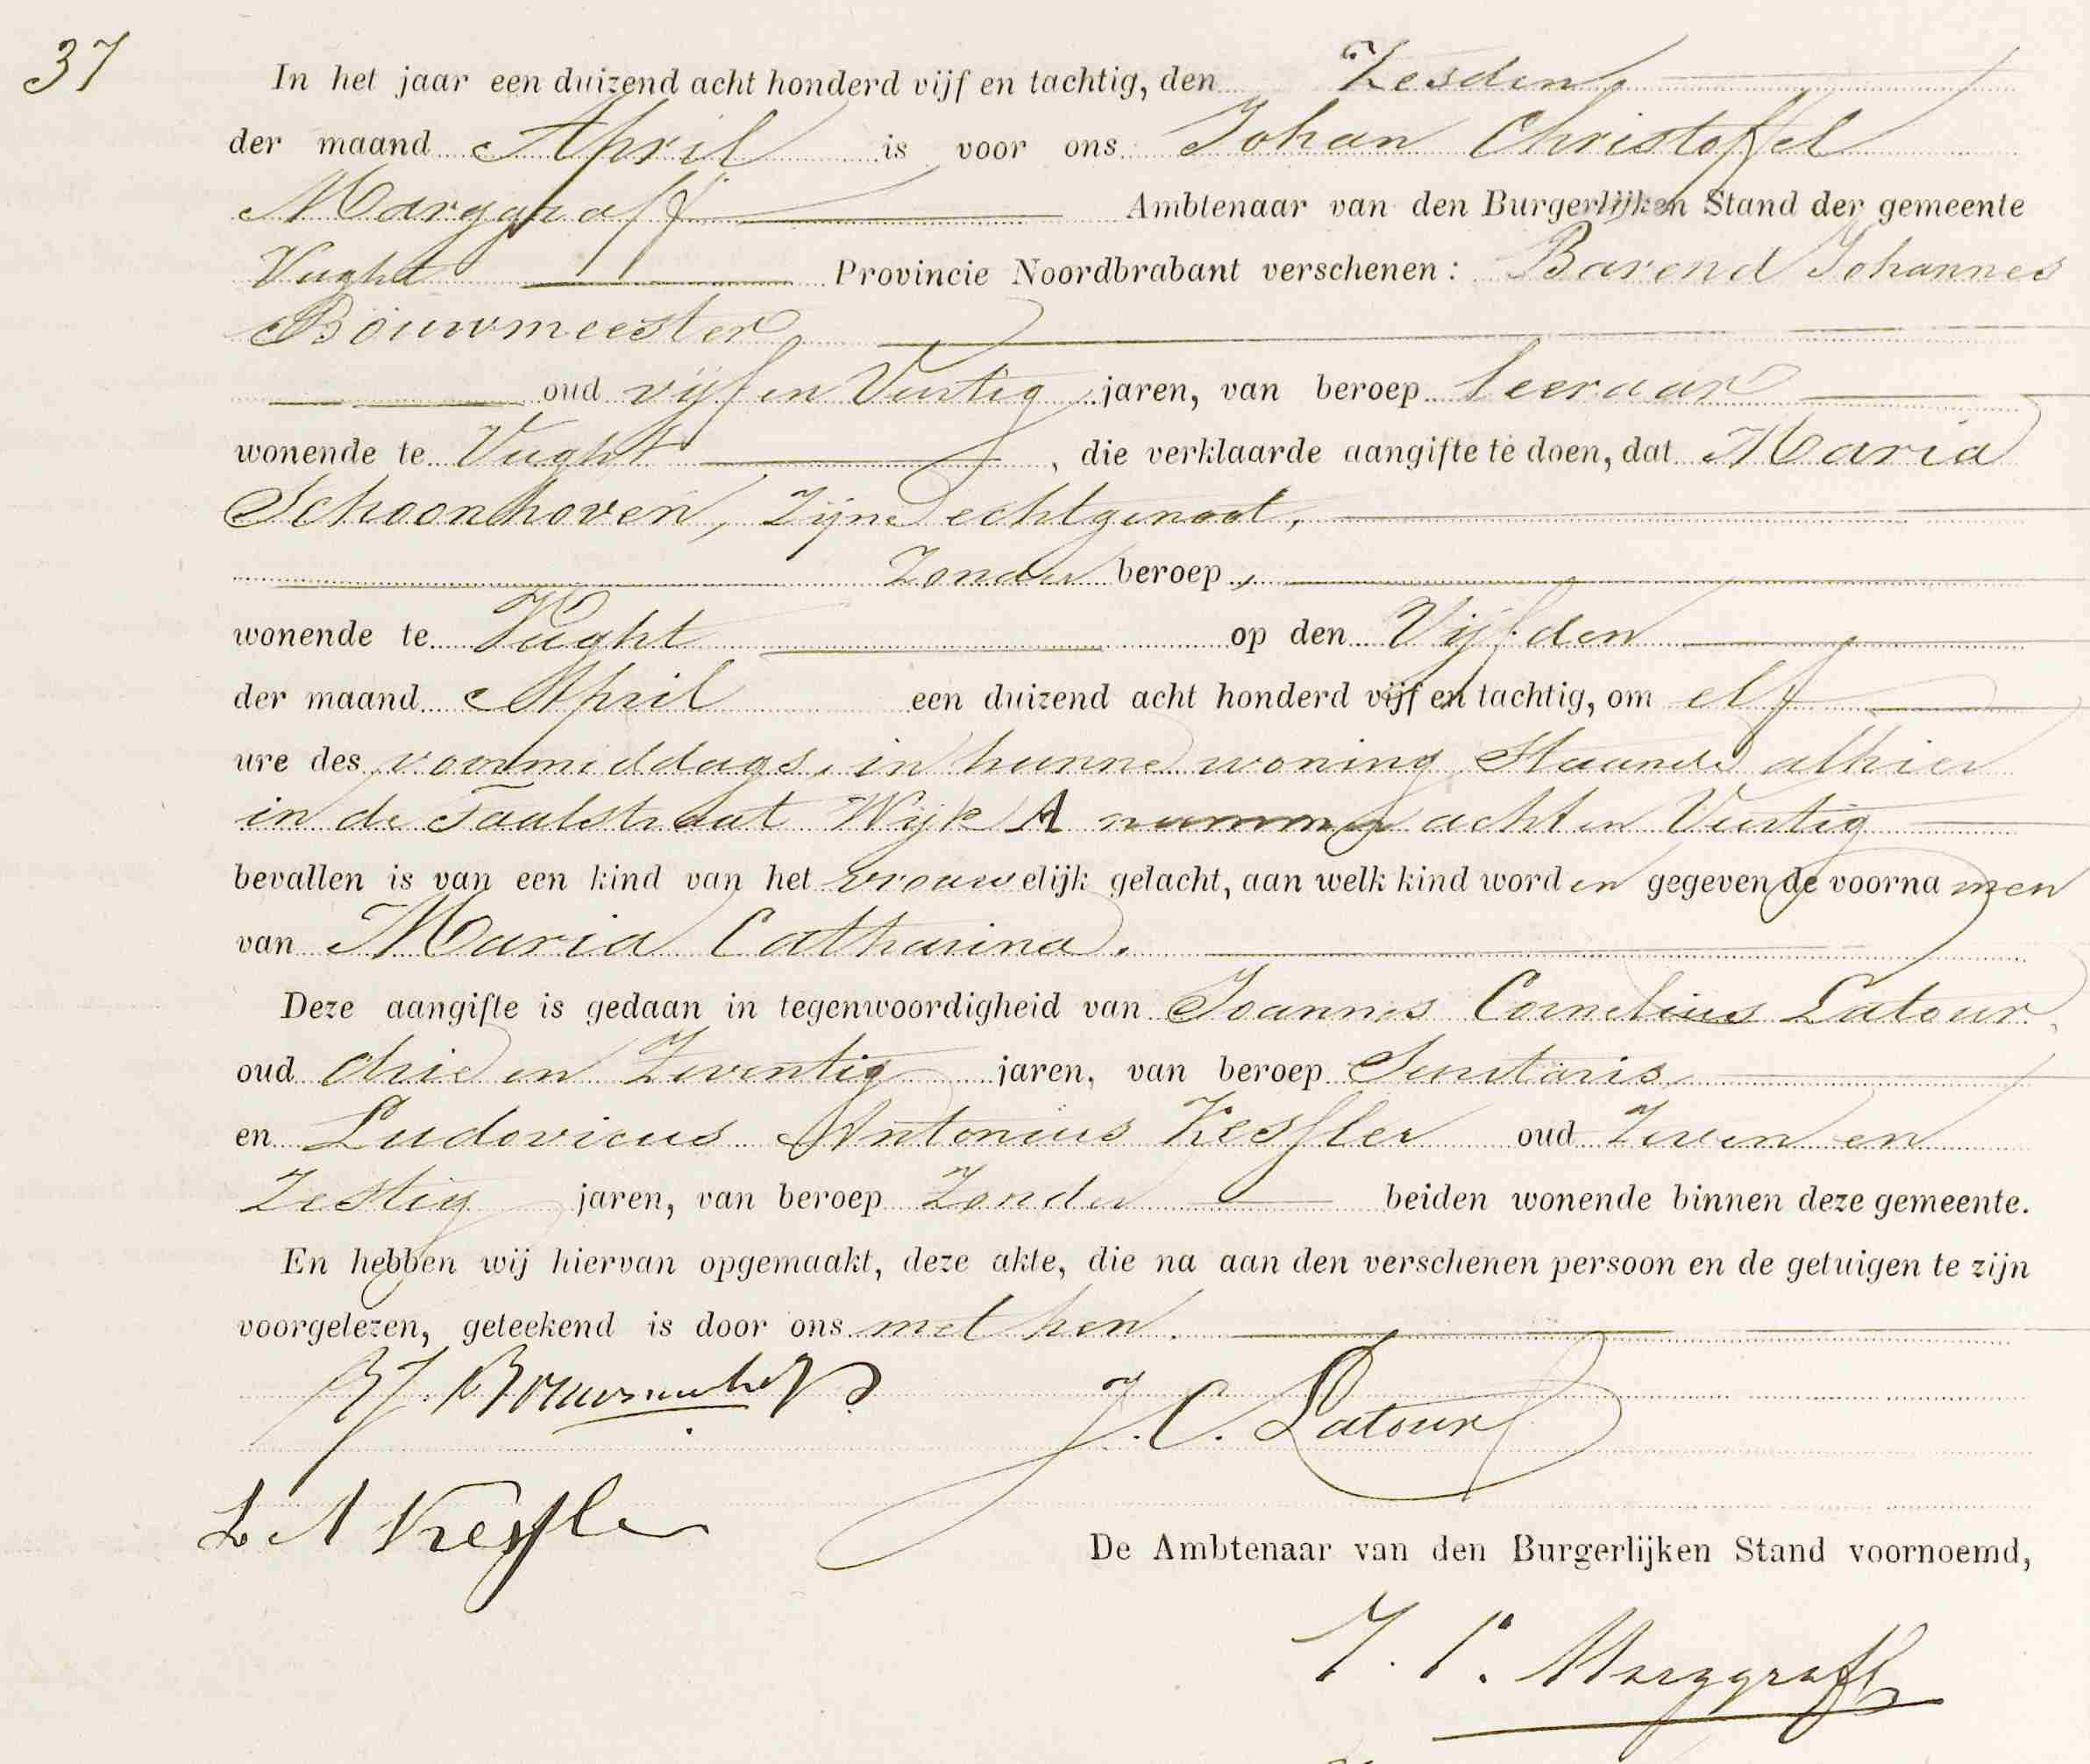 37
In het jaar een duizend acht honderd vijf en tachtig, den Zesden
der maand April is voor ons Johan Christoffel
Marggraff Ambtenaar van den Burgerlijken Stand der gemeente
Vught Provincie Noordbrabant verschenen: Barend Johannes
Bouwmeester
oud vijf en Veertig jaren, van beroep leeraar
wonende te Vught, die verklaarde aangifte te doen, dat Maria
Schoonhoven, Zijne echtgenoot,
Zonder beroep,
wonende te Vught op den Vijfden
der maand April een duizend acht honderd vijf en tachtig, om elf
ure des voormiddags, in hunne woning Staande alhier
in de Taalstraat Wijk A nummer acht en Veertig
bevallen is van een kind van het vrouwelijk gelacht, aan welk kind worden gegeven de voornamen
van Maria Catharina.
Deze aangifte is gedaan in tegenwoordigheid van Joannes Cornelius Latour,
oud drie en Zeventig jaren, van beroep Secretaris
en Ludovicus Antonius Kessler oud Zeven en
Zestig jaren, van beroep Zonder beiden wonende binnen deze gemeente.
En hebben wij hiervan opgemaakt, deze akte, die na aan den verschenen persoon en de getuigen te zijn
voorgelezen, geteekend is door ons met hen.
BJ. Bouwmeester
J. C. Latour
L A Kessler
De Ambtenaar van den Burgerlijken Stand voornoemd,
J. C. Marggraff